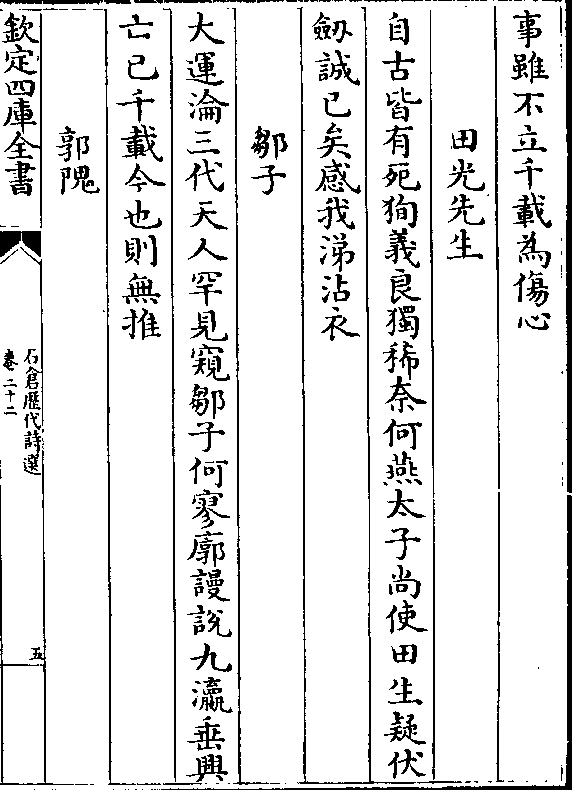 事雖不立千載為傷心
田光先生
自古皆有死狥義良獨稀奈何燕太子尚使田生疑伏
劒誠已矣感我涕沾衣
鄒子
大運淪三代天人罕見窺鄒子何寥廓謾說九瀛垂興
亡已千載今也則無推
郭隗
欽定四庫全書
石倉歷代詩選
卷二十二
五